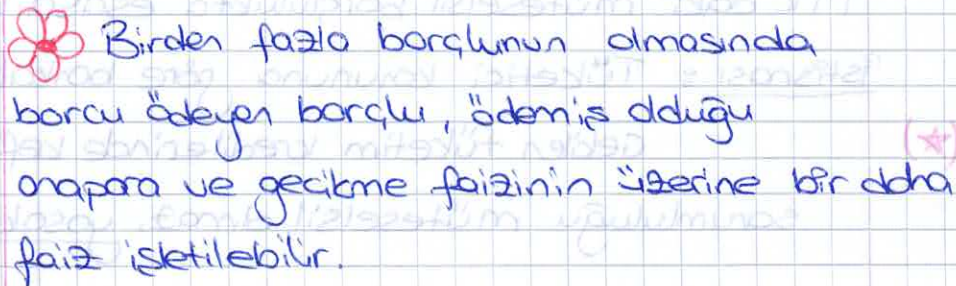 Birden fazla borçlunun olmasında
borcu ödeyen borçlu, ödemiş olduğu
anapara ve gecikme faizinin üzerine bir daha
faiz işletilebilir.